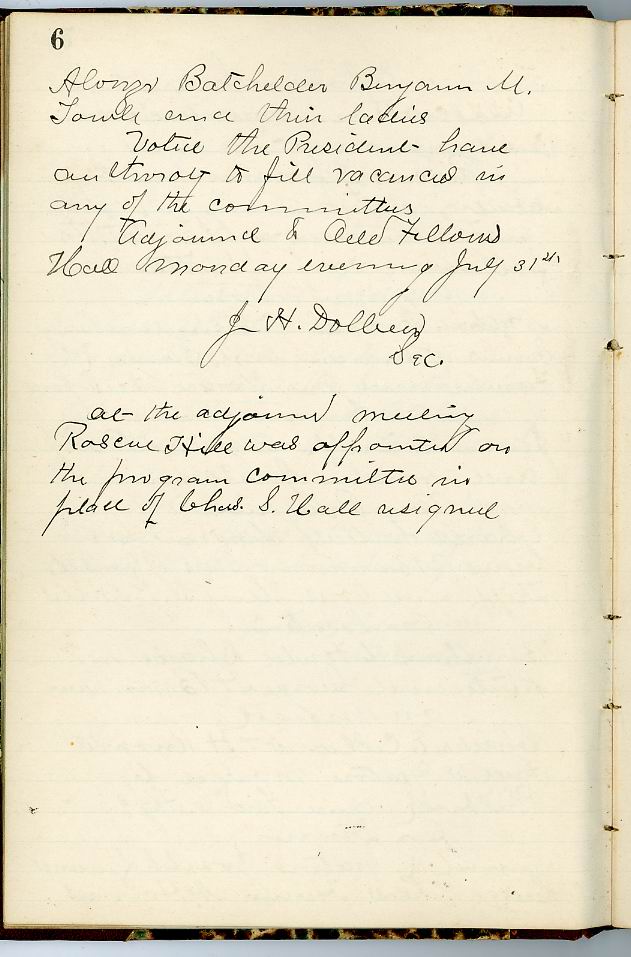 6
Alonzo Batchelder Benjamin M.
Towle and their ladies
Voted the President have
authority to fill vacancies in
any of the committees
Adjourned to Odd Fellows
Hall Monday evening July 31st
J. H. Dolbeer
Sec.
at the adjourned meeting
Roscoe Hill was appointed on
the program committee in
place of Chas. S. Hall resigned